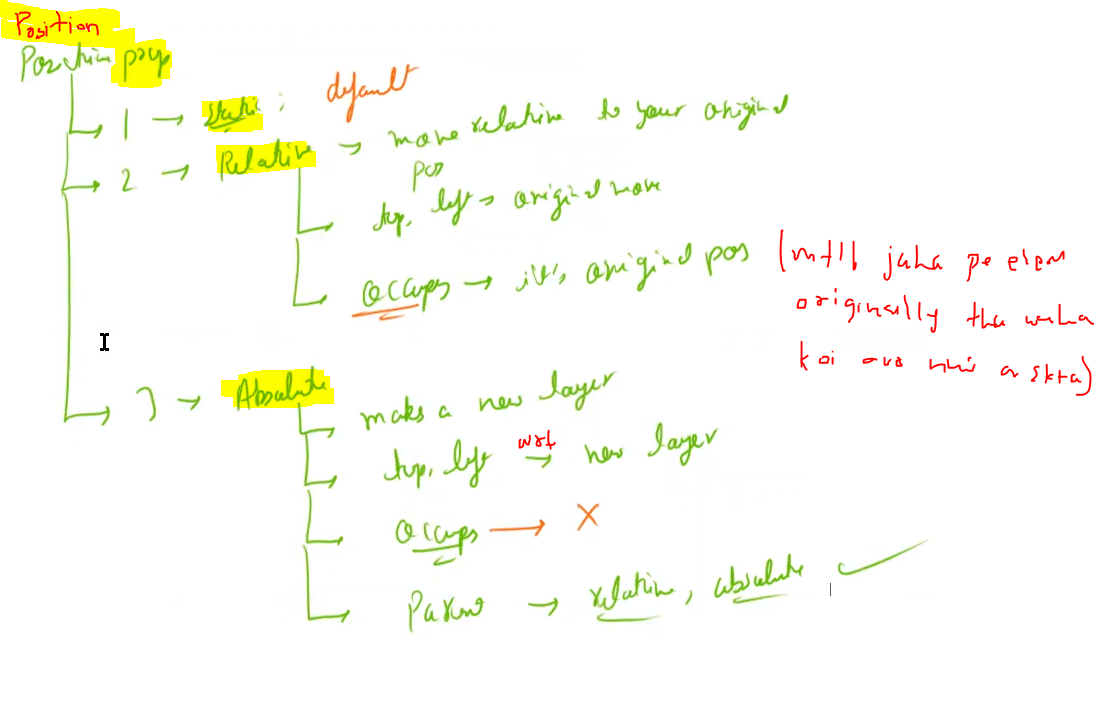 Position
Position prop
1 → Static : default
2 → Relative → move relative to your original
pos
top, left → original move
Occupys → it's original pos (mtlb jaha pe elem
originally tha waha
koi ara nhi a skta)
3 → Absolute
makes a new layer
top, left wrt → new layer
Occupys → X
Parent → relative, absolute ✓